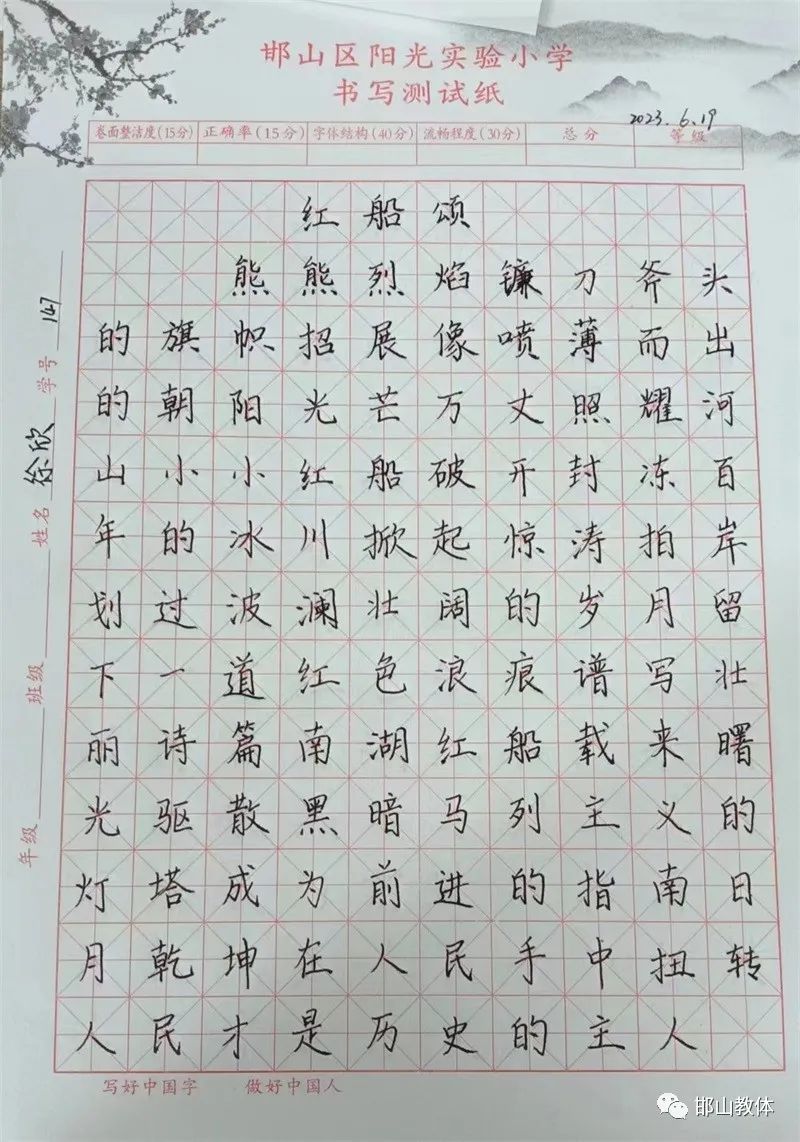 邯山区阳光实验小学
书写测试纸
2023.6.19
卷面整洁度(15分) 正确率(15分) 字体结构(40分) 流畅程度(30分) 总分 等级
红船颂
熊熊烈焰镰刀斧头
的旗帜招展像喷薄而出
的朝阳光芒万丈照耀河
山小小红船破开封冻百
年的冰川掀起惊涛拍岸
划过波澜壮阔的岁月留
下一道红色浪痕谱写壮
丽诗篇南湖红船载来曙
光驱散黑暗马列主义的
灯塔成为前进的指南日
月乾坤在人民手中扭转
人民才是历史的主人
年级 班级 姓名 徐欣 学号 147
写好中国字 做好中国人
邯山教体